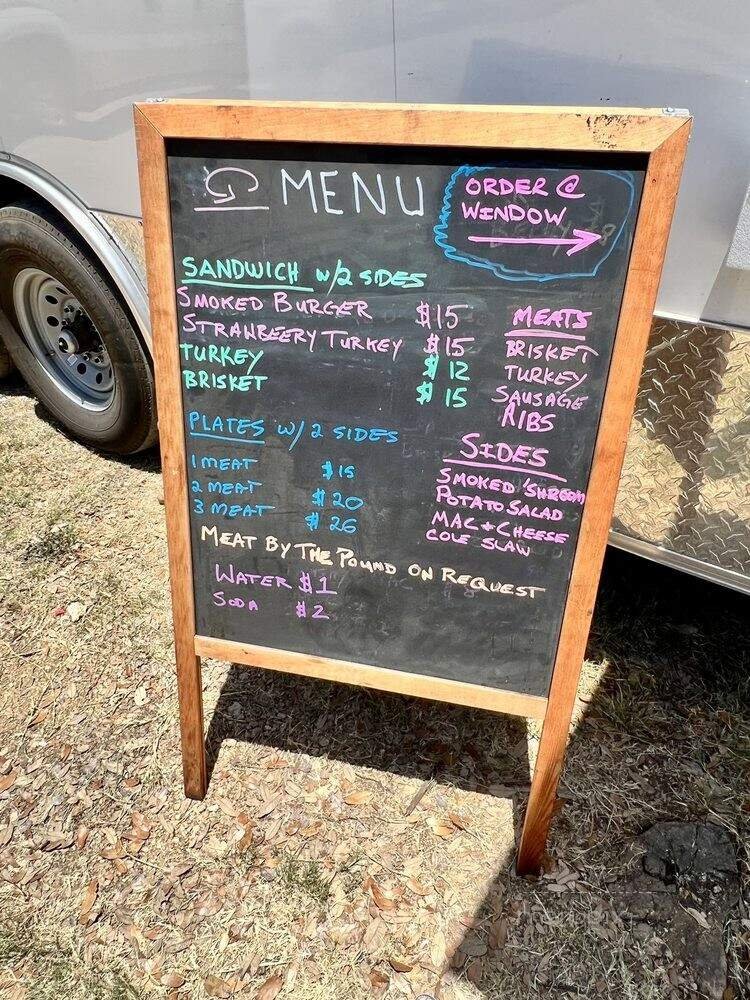 MENU
ORDER @
WINDOW
SANDWICH W/2 SIDES
SMOKED BURGER $15
STRANBEERY TURKEY $15
TURKEY $12
BRISKET $15
MEATS
BRISKET
TURKEY
SAUSAGE
RIBS
PLATES W/ 2 SIDES
1 MEAT $15
2 MEAT $20
3 MEAT $26
SIDES
SMOKED 'SHROOM
POTATO SALAD
MAC + CHEESE
COLE SLAW
MEAT BY THE POUND ON REQUEST
WATER $1
SODA $2